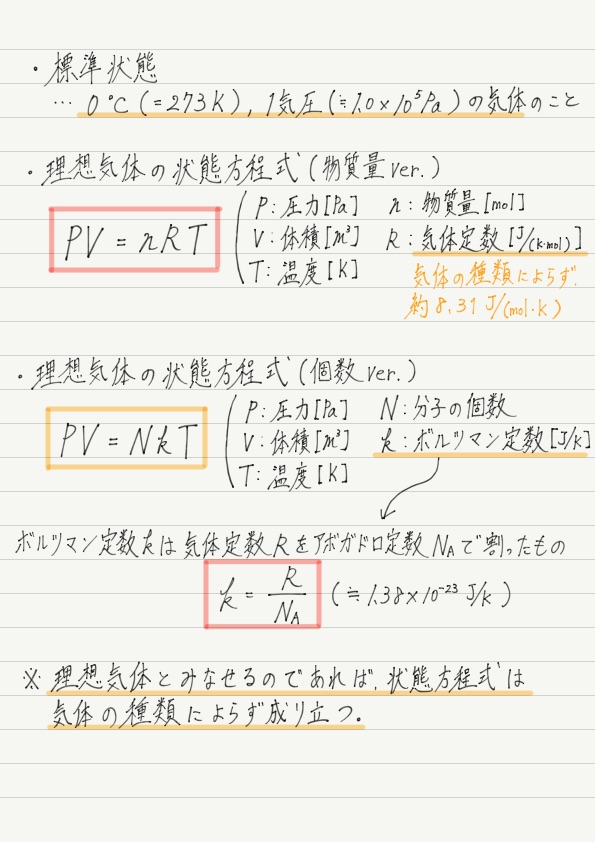 ・標準状態
… 0℃(=273K), 1気圧(≒1.0×10⁵Pa)の気体のこと
・理想気体の状態方程式(物質量ver.)
PV=nRT
P:圧力[Pa] n:物質量[mol]
V:体積[m³] R:気体定数[J/(K・mol)]
T:温度[K]
気体の種類によらず、
約8.31 J/(mol・K)
・理想気体の状態方程式(個数ver.)
PV=NkT
P:圧力[Pa] N:分子の個数
V:体積[m³] k:ボルツマン定数[J/K]
T:温度[K]
ボルツマン定数kは気体定数Rをアボガドロ定数NAで割ったもの
k=R/NA (≒1.38×10⁻²³ J/K)
※理想気体とみなせるのであれば、状態方程式は
気体の種類によらず成り立つ。